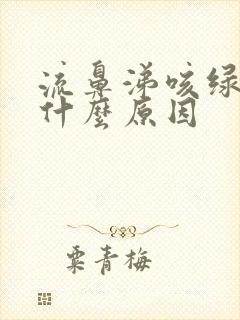 流鼻涕咳绿
什麼原因
粟青梅